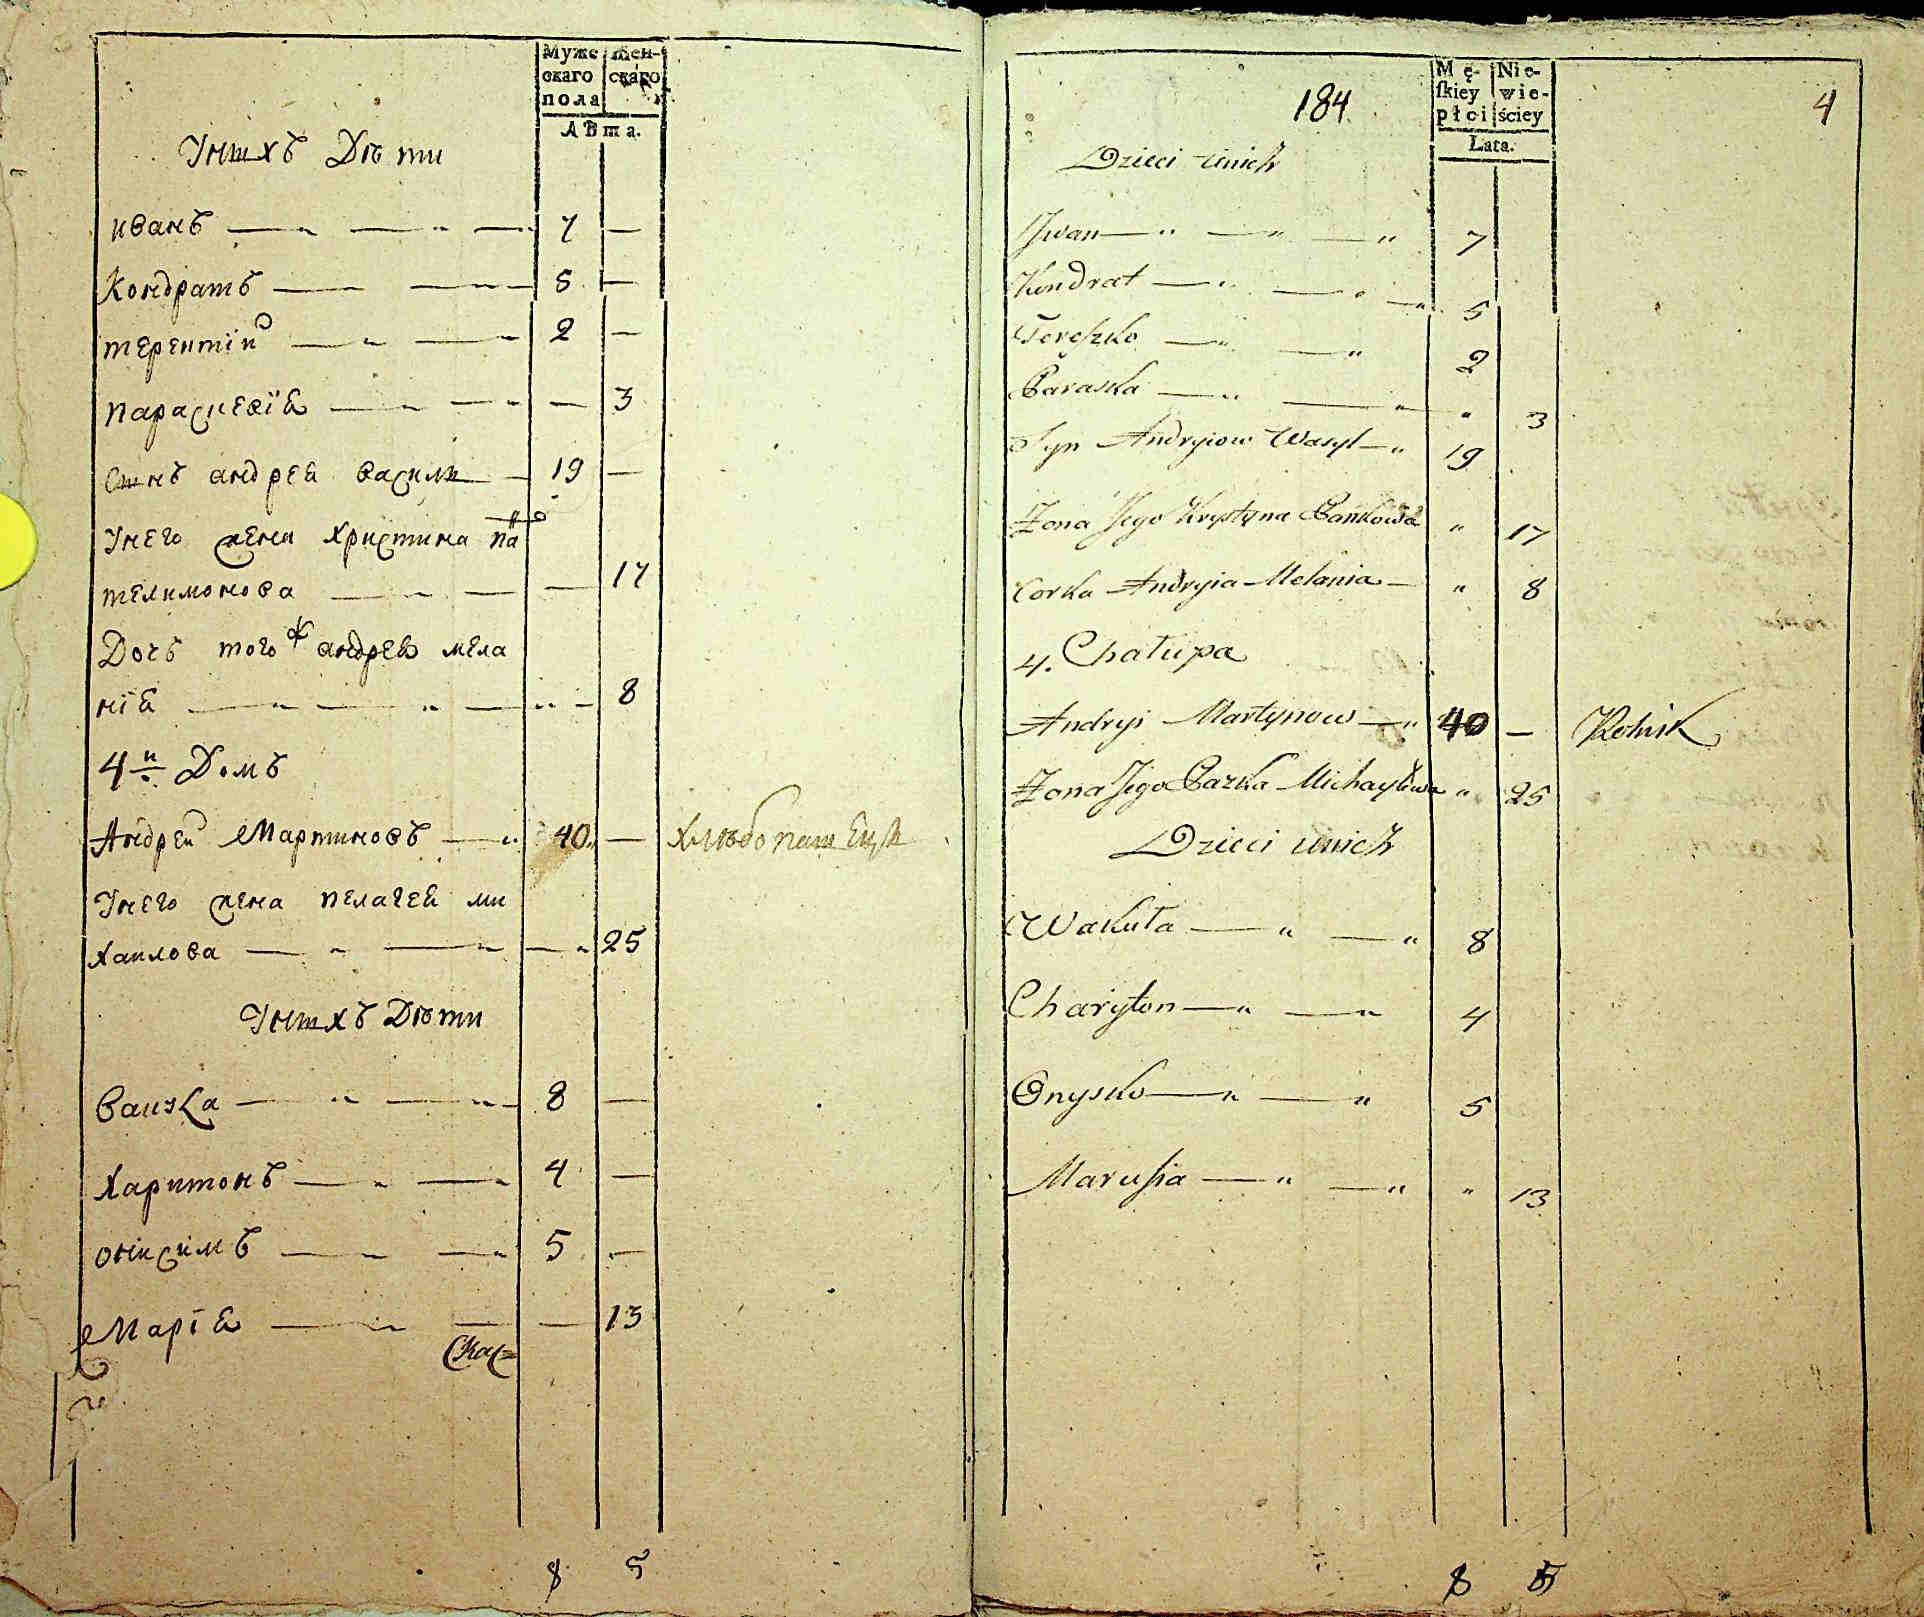 Муже
скаго
пола
Жен-
скаго
Лѣта.
Унихъ Дѣти
иванъ 7 —
Кондратъ 5 —
терентій 2 —
параскевія — 3
Синъ андрея василя 19 —
Унего жена христина па
телимонова — 17
Дочъ того ж андрея мела
нія — 8
4й Домъ
Андрей Мартиновъ 40 — хлѣбопашецъ
Унего жена пелагея ми
хаилова — 25
Унихъ Дѣти
8 —
Харитонъ 4 —
онисимъ 5 —
Марія — 13
8 5
184
4
Mę-
ſkiey
płci
Nie-
wie-
ściey
Lata.
Dzieci unich
Jwan 7
Kondrat 5
Tereszko 2
Paraska " 3
Syn Andryiow Wasyl 19
Żona Jego Krystyna Pankowa " 17
Corka Andryia Melania " 8
4. Chałupa
Andryi Martynow 40 — Rolnik
Żona Jego Pazka Michayłowa " 25
Dzieci unich
Wakuła 8
Charyton 4
Onysko 5
Marusia " 13
8 5